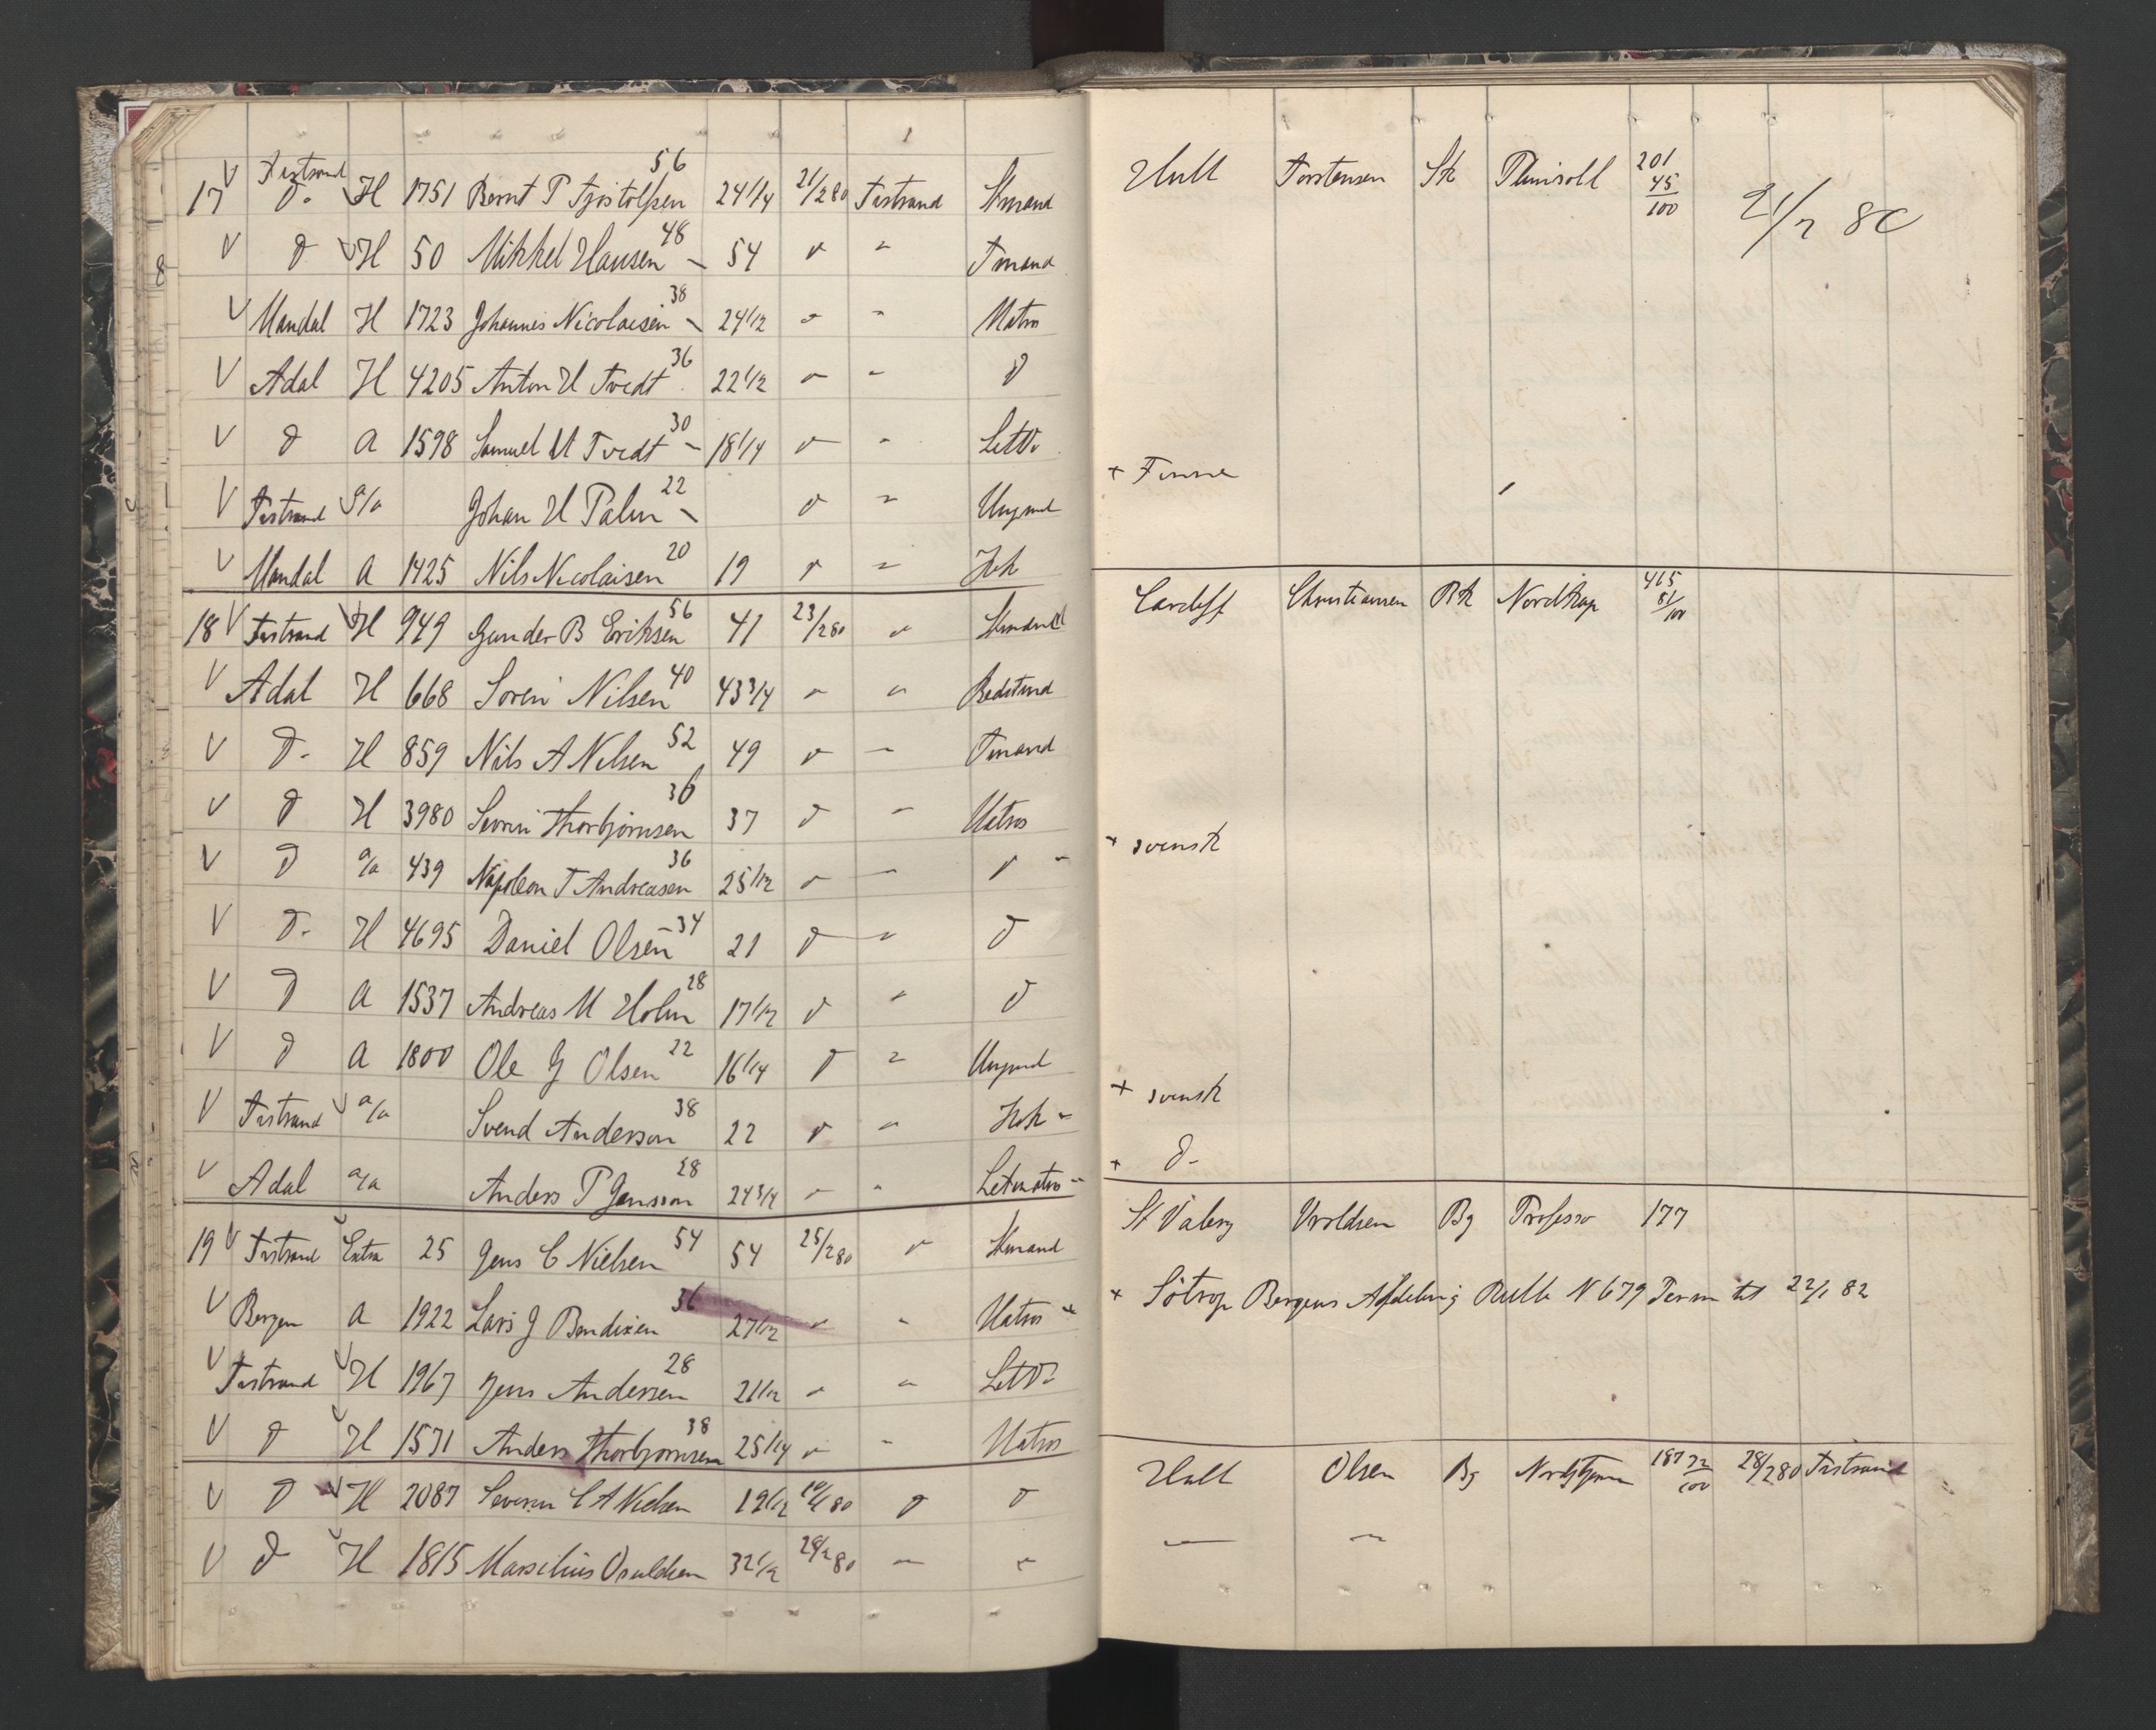 17 V Tvstrand
D. H 1751 Bernt T Tjøstolfsen 56 24 1/4 21/2 80 Tvstrand Stmand Hull Torstensen Sk Plimsoll 201 45/100 21/2 80
V D H 50 Mikkel Hansen 48 - 54 D " Tmand
V Mandal H 1723 Johannes Nicolaisen 38 - 24 1/2 " " Matros
V Adal H 4205 Anton H Tvedt 36 22 1/2 " " D
V D A 1598 Samuel M Tvedt 30 - 18 1/4 D " LetD.
V Tvstrand a/a Johan H Palm 22 - D " Ungmd + Finne
V Mandal A 1425 Nils Nicolaisen 20 19 D " Kok
18 V Tvstrand H 949 Gunder B Eriksen 56 41 23/2 80 " Stmand Cardiff Christiansen Bk Nordkap 465 81/100
V Adal H 668 Søren Nilsen 40 43 3/4 " " Bedstmd
V D. H 859 Nils A Nilsen 52 49 D " Tmand
V D H 3980 Søren Thorbjørnsen 36 37 D " Matros
V D a/a 439 Napoleon T Andreasen 36 25 1/2 " " D - + svensk
V D. H 4695 Daniel Olsen 34 21 D " D
V D A 1537 Andreas M Holm 28 17 1/2 D " D
V D A 1800 Ole G Olsen 22 16 1/4 D " Ungmd
V Tvstrand a/a Svend Anderson 38 22 D " Kok - + svensk
V Adal a/a Anders P Jansson 28 24 3/4 " " Letmatros - + D.
19 V Tvstrand Extra 25 Jens C Nielsen 54 54 25/2 80 D Stmand St Valery Uroldsen Bg Professor 177
V Bergen A 1922 Lars J Bendixen 36 27 1/2 " " Matros + + Søtrop Bergens Afdeling Rulle N 679 Perm til 22/1 82
V Tvstrand H 1967 Jens Andersen 28 21 1/2 " " LetD.
V D H 1531 Anders Thorbjørnsen 38 25 1/4 " " Matros
V D H 2087 Severin C A Nielsen 19 1/2 80 D D Hull Olsen Bg 187 72/100 28/2 80 Tvstrand
V D H 1815 Marselius Osuldsen 32 1/2 28/2 80 " " — —